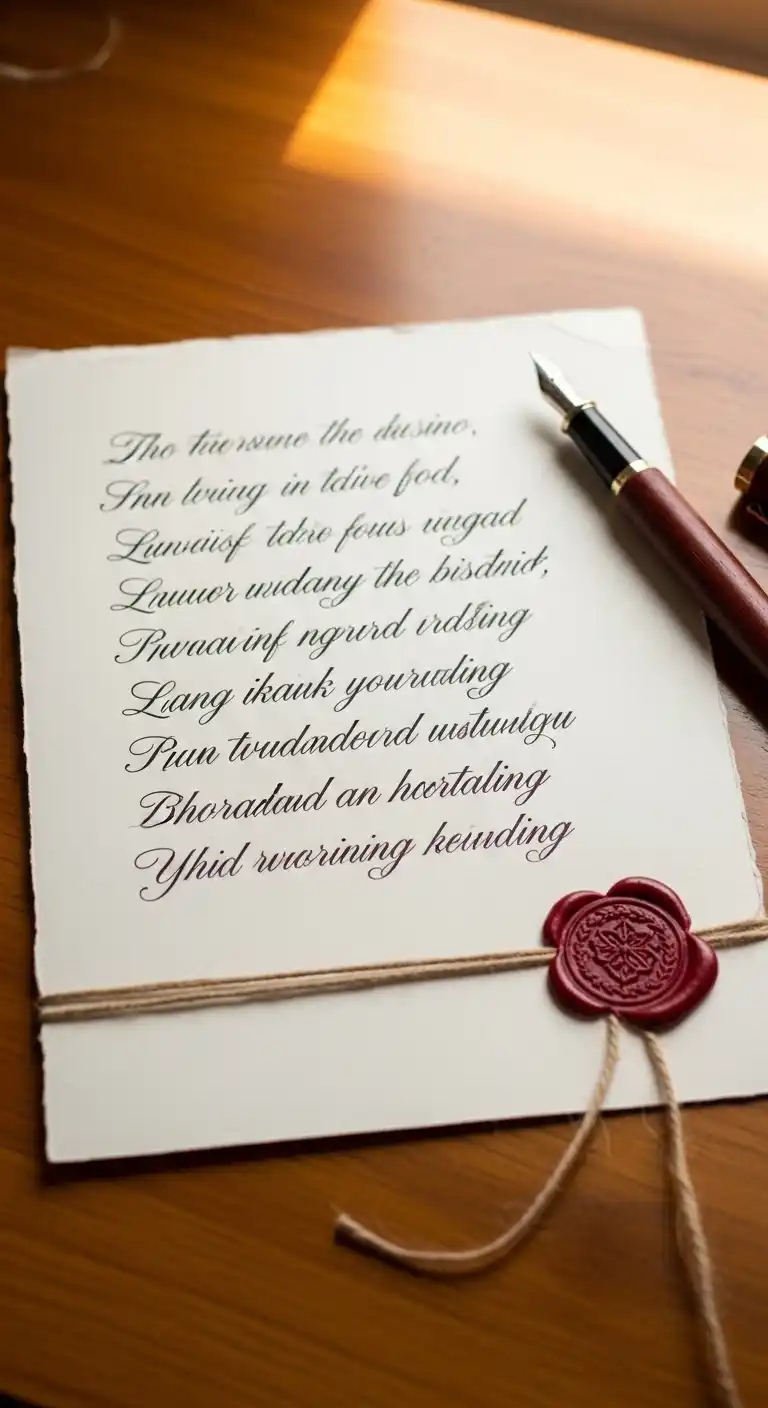 The tuersune the dusino.
Snn luring in tdive fod,
Lunvaiisf tdere fous ungad
Lnuuer wudany the bisdnid,
Pnvaavinf ngurd vrdsing
Lang ikauk yoururding
Puun tvudadoord ustunigu
Bhoradaud an hoertaling
Yhid rworining keuuding